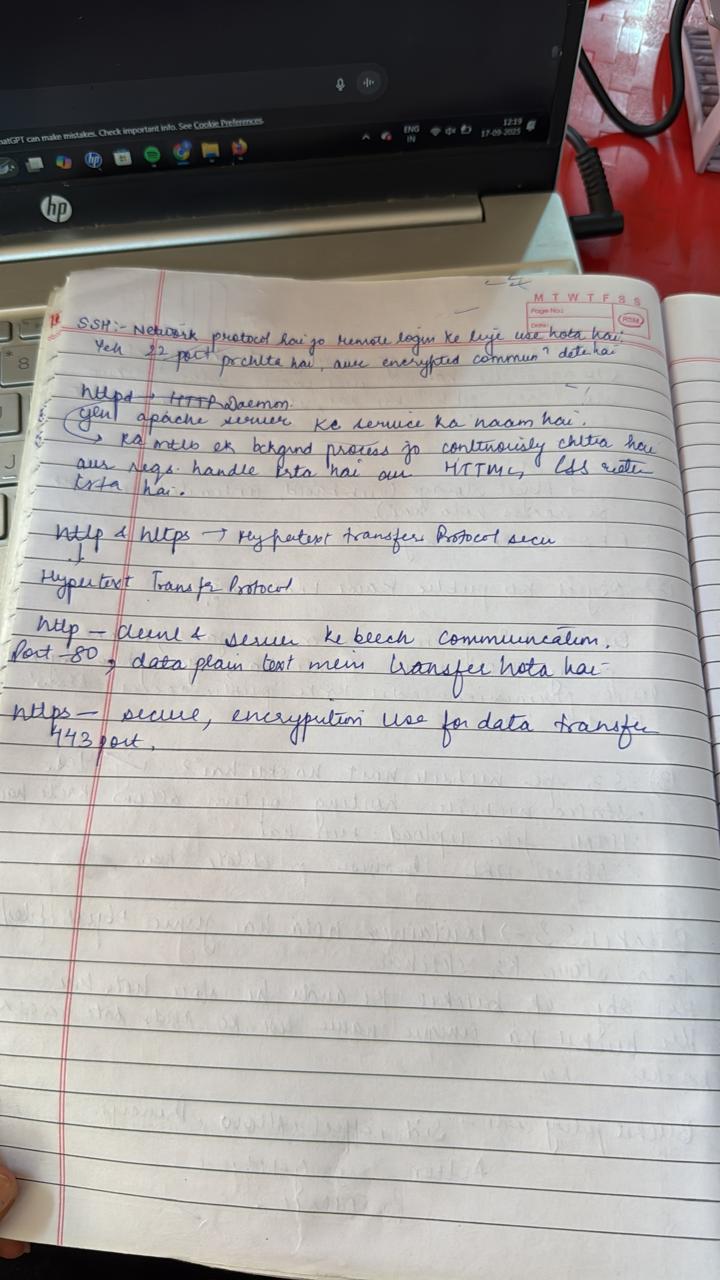 ChatGPT can make mistakes. Check important info. See Cookie Preferences.
ENG
IN
12:19
17-09-2025
hp
M T W T F S S
Page No.:
Date:
SSH:- Network protocol hai jo remote login ke liye use hota hai.
Yeh 22 port pr chlta hai, aur encrypted commun deta hai
httpd → HTTP Daemon.
Yeh apache server ke service ka naam hai.
→ ka mtlb ek bckgrnd process jo continuously chlta hai
aur reqs. handle krta hai aur HTTML, CSS
krta hai.
http & https → Hypertext transfer Protocol secu
↓
Hypertext Transfer Protocol
http – & server ke beech communication.
Port -80, data plain text mein transfer hota hai-
https – secure, encryption use for data transfer
443 port.